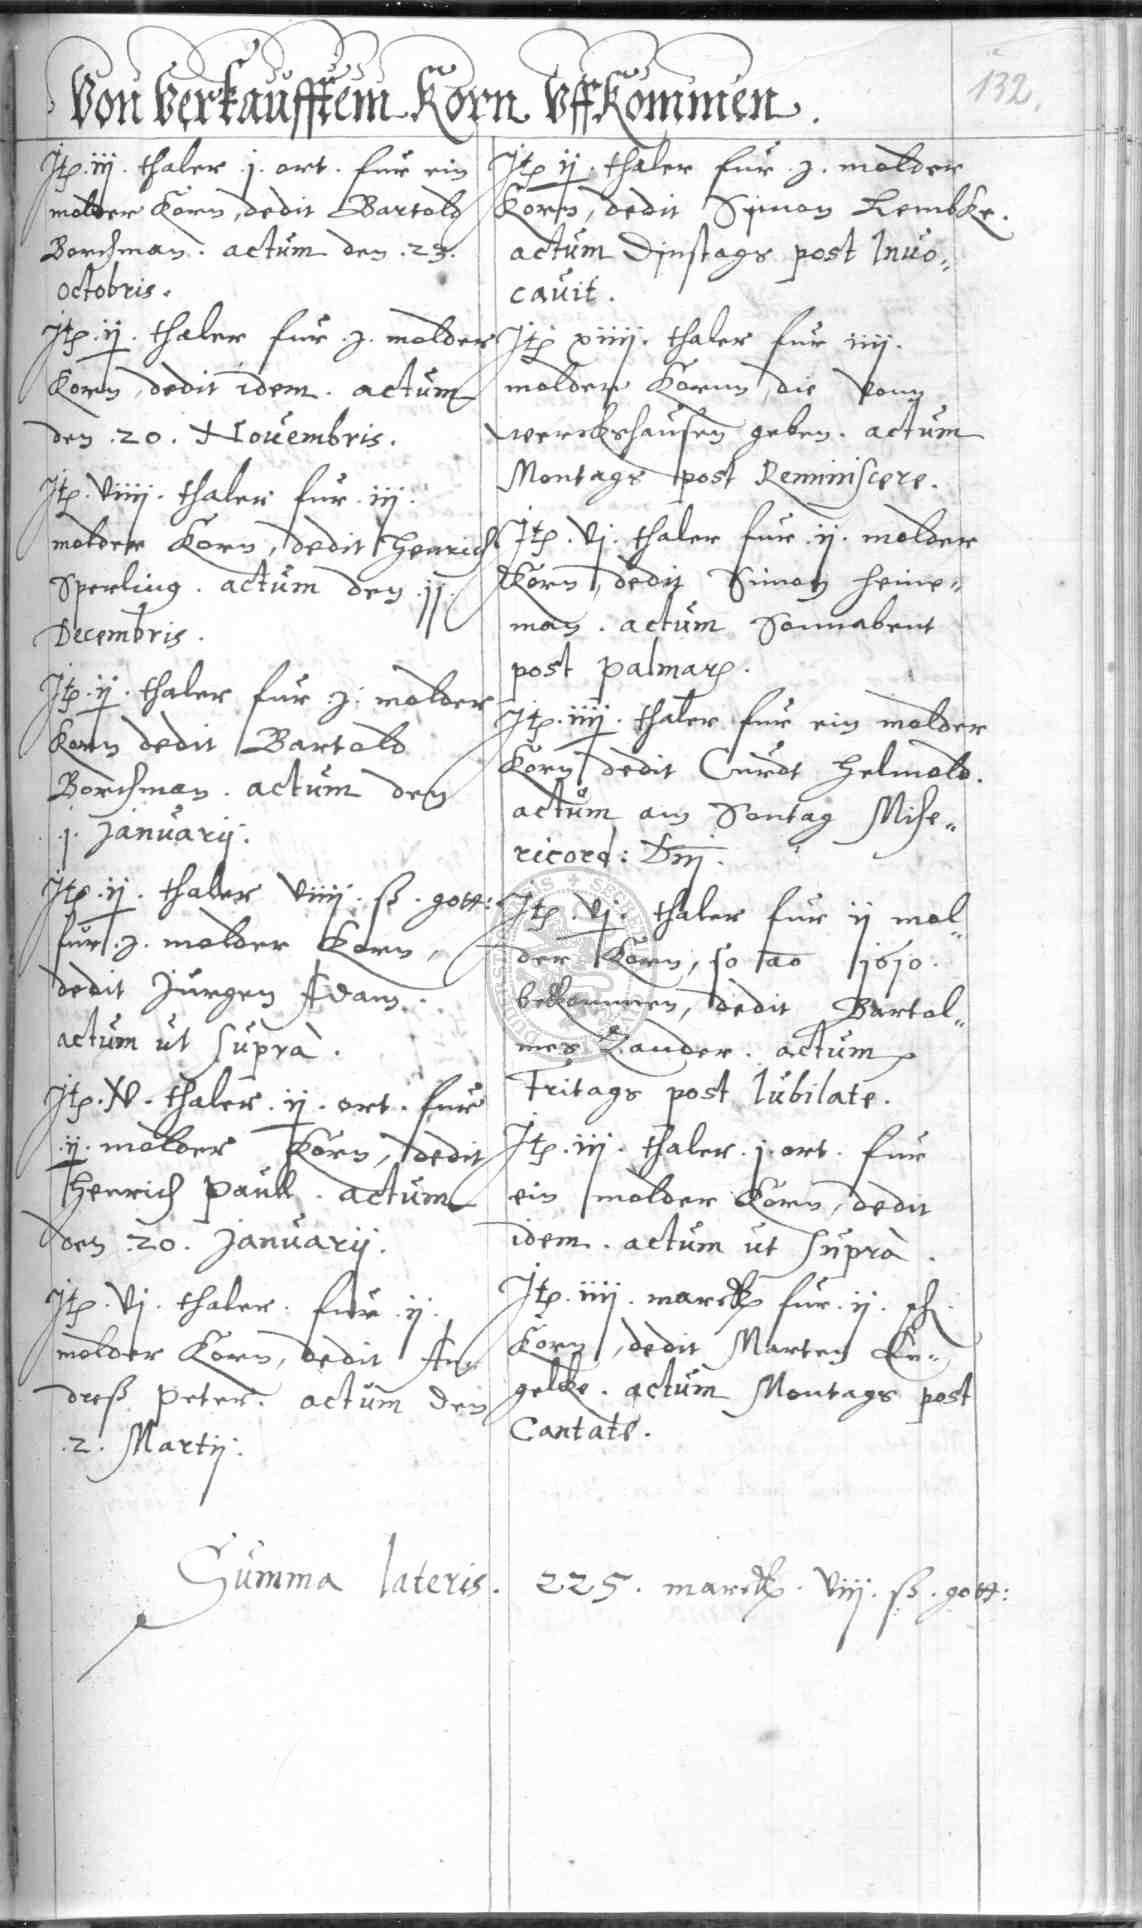 132.
Von verkaufftem Korn Uffkommen.
Jtp. iij. thaler .j. ort. fur ein
molder Korn, dedit Bartold
Borchman. actum den .23.
octobris.
Jtp. ij. thaler fur .z. molder
Korn, dedit idem. actum
den .20. Novembris.
Jtp. viiij. thaler fur .iij.
molder Korn, dedit Henrich
Sperling. actum den .11.
Decembris.
Jtp. ij. thaler fur .z. molder
Korn dedit Bartold
Borchman. actum den
j. Januarij.
Jtp. ij. thaler viiij. ß. gott:
fur .z. molder Korn,
dedit Jurgen Adam.
actum ut suprà.
Jtp. v. thaler .ij. ort. fur
.ij. molder Korn, dedit
Henrich Paull. actum
den .20. Januarij.
Jtp. vj. thaler. fur .ij.
molder Korn, dedit An
dreß Peter. actum den
.2. Martij.
Jtp ij. thaler fur .z. molder
Korn, dedit Simon Lembke.
actum Dinstags post Invo„
cavit.
Jtp xiiij. thaler fur iiij.
molder Kornn, die vonn
Werckshausen geben. actum
Montags post Reminiscere.
Jtp. vj. thaler fur .ij. molder
Korn, dedit Simon Heine„
man. actum Sonnabent
post palmarp.
Jtp. iiij. thaler fur ein molder
Korn dedit Curdt Helmold.
actum am Sontag Mise„
ricord: Dnj.
Jtp. vj. thaler fur ij mol„
der Korn, so ao 1610.
bekommen, dedit Bartol„
mes Zander. actum
Fritags post Iubilate.
Jtp. iij. thaler .j. ort. fur
ein molder Korn, dedit
idem. actum ut suprà.
Jtp. iiij. marck fur .ij.
Korn, dedit Marten En„
gelke. actum Montags post
Cantate.
Summa lateris. 225. marck. viij. ß. gott: